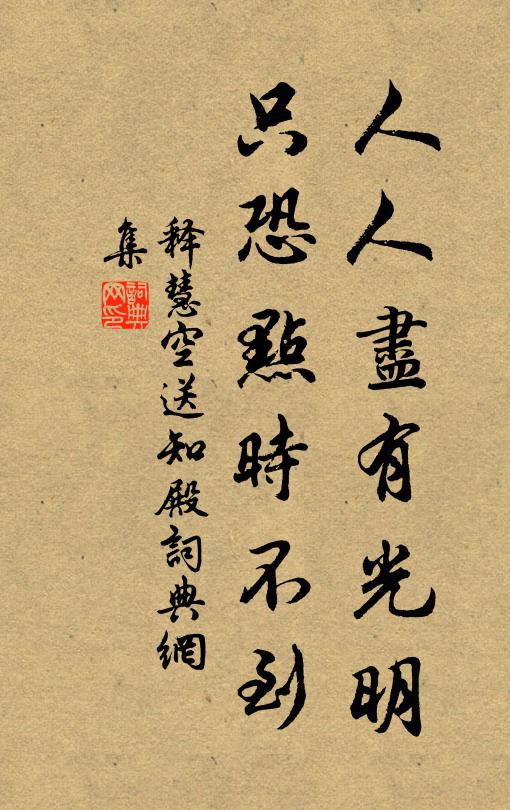 人人盡有光明
只恐點時不到
释慧空送知殿詞典網
集
詞典網印